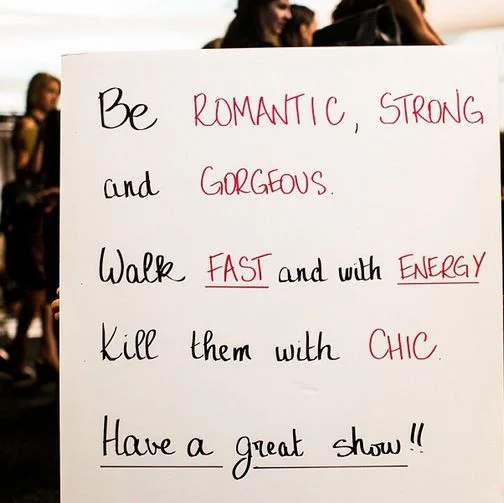 Be ROMANTIC, STRONG
and GORGEOUS.
Walk FAST and with ENERGY
Kill them with CHIC.
Have a great show!!